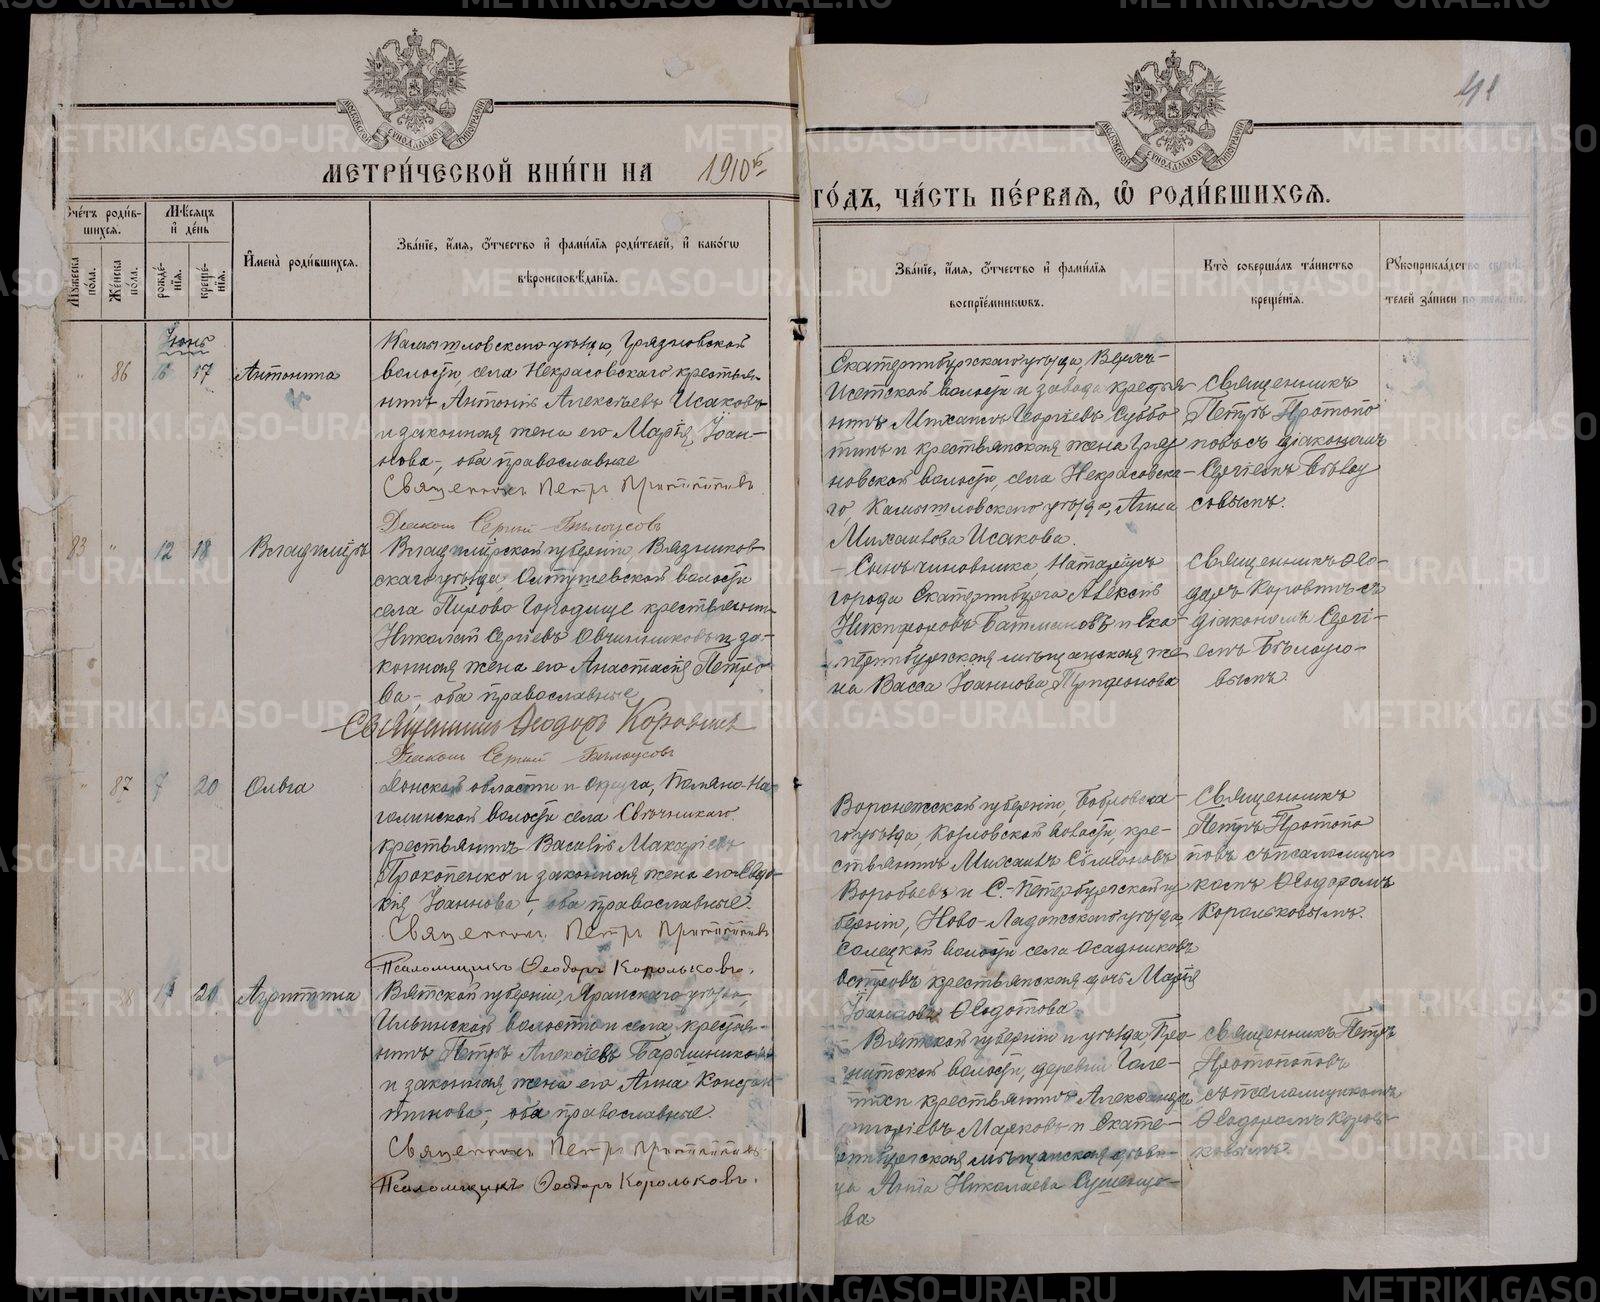 41
МЕТРИ́ЧЕСКОЙ КНИ́ГИ НА 1910й
ГО́ДЪ, ЧА́СТЬ ПЕ́РВАЯ, Ѡ РОДИ́ВШИХСЯ.
Сче́тъ роди́вшихся.
Му́жеска по́ла.
Же́нска по́ла.
Мѣ́сяцъ и де́нь
рожде́нія.
креще́нія.
Имена̀ роди́вшихся.
Зва́ніе, и́мя, о́тчество и фами́лія роди́телей, и како́гѡ
вѣроисповѣ́данія.
Зва́ніе, и́мя, о́тчество и фами́лія
воспріе́мникѡвъ.
Кто̀ соверша́лъ та́инство
креще́нія.
Рукоприкла́дство свидѣ́-
телей за́писи по жела́нію.
Іюнь
86 16 17 Антонина
Камышловскаго уѣзда, Грязновской
волости, села Некрасовскаго крестья-
нинъ Антоній Алексѣевъ Исаковъ
и законная жена его Марія Іоан-
нова, оба православные
Священникъ Петръ Протопоповъ
Диаконъ Сергий Бѣлоусовъ
Екатеринбургскаго уѣзда, Верхъ-
Исетской волости и завода крестья
нинъ Михаилъ Георгіевъ Суббо
тинъ и крестьянская жена Гряз
новской волости, села Некрасовска-
го, Камышловскаго уѣзда, Анна
Михаилова Исакова.
Священникъ
Петръ Протопо
повъ съ діакономъ
Сергіемъ Бѣлоу
совымъ.
83 " 12 18 Владиміръ
Владимірской губерніи, Вязников-
скаго уѣзда, Олтушевской волости
села Пирово-Городище крестьянинъ
Николай Сергіевъ Овчинниковъ и за-
конная жена его Анастасія Петро-
ва, оба православные
Священникъ Ѳеодоръ Коровинъ
Диаконъ Сергий Бѣлоусовъ
Сынъ чиновника Натаріусъ
города Екатеринбурга Алексѣй
Никифоровъ Батмановъ и Ека-
теринбургская мѣщанская же-
на Васса Іоаннова Трифонова
Священникъ Ѳео-
доръ Коровинъ съ
діакономъ Сергі-
емъ Бѣлоусо-
вымъ
" 87 7 20 Ольга
Донской области и округа,
волости села
крестьянинъ Василій Макаріевъ
Прокопенко и законная жена его Евдо-
кія Іоаннова, оба православные.
Священникъ Петръ Протопоповъ
Псаломщикъ Ѳеодоръ Корольковъ.
Воронежской губерніи, Бобровска-
го уѣзда, Козловской волости, кре-
стьянинъ Михаилъ Симеоновъ
Воробьевъ и С.-Петербургской гу
берніи, Ново-Ладожскаго уѣзда,
Солецкой волости села Осадниковъ
Островъ крестьянская дочь Марія
Іоаннова Ѳеодотова.
Священникъ
Петръ Протопо
повъ съ псаломщи
комъ Ѳеодоромъ
Корольковымъ.
20 Агриппина
Вятской губерніи, Яранскаго уѣзда,
Ильинской волости и села, крестья-
нинъ Петръ Алексіевъ Барышниковъ
и законная жена его Анна Констан-
тинова, оба православные.
Священникъ Петръ Протопоповъ
Псаломщикъ Ѳеодоръ Корольковъ.
Вятской губерніи и уѣзда,
волости, деревни
крестьянинъ Александръ
Марковъ и Екате-
ринбургская мѣщанская дѣви-
ца Анна Николаева
ва
Священникъ Петръ
Протопоповъ
съ псаломщикомъ
Ѳеодоромъ Король-
ковымъ.